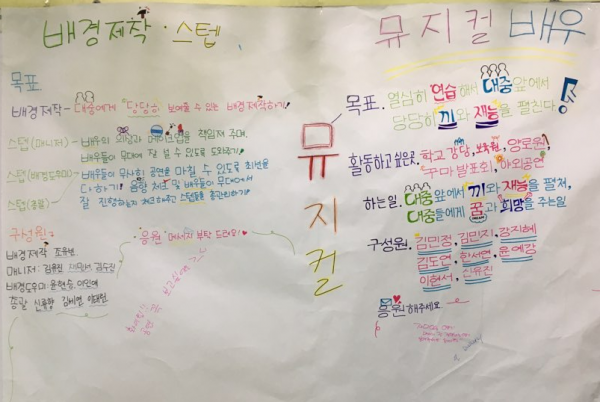 배경제작 · 스텝
목표
배경제작 - 대중에게 "당당히 보여줄 수 있는 배경제작하기!
스텝(매니저) - 배우의 의상과 메이크업을 책임져 주며,
배우들이 무대에 잘 설 수 있도록 도와주기!
스텝(배경도우미) - 배우들이 무사히 공연을 마칠 수 있도록 최선을
다하기!
스텝(총괄) 음향 체크 및 배우들이 무대에서
잘 진행하는지 체크해주고 스텝들을 총관리하기!
구성원
배경제작
매니저: 김유진 김수진
배경도우미: 윤현승
총괄
응원 메시지 부탁 드려요!
뮤
지
컬
뮤지컬 배우
목표. 열심히 연습해서 대중 앞에서
당당히 끼와 재능을 펼친다!
활동하고싶은곳. 학교강당, 보육원, 양로원,
꾸마 발표회, 야외공연
하는일. 대중 앞에서 끼와 재능을 펼쳐,
대중들에게 꿈과 희망을 주는일
구성원. 김민정, 김민지, 강지혜
김도연, 한서연, 윤예강
이현서, 신유진
응원해주세요